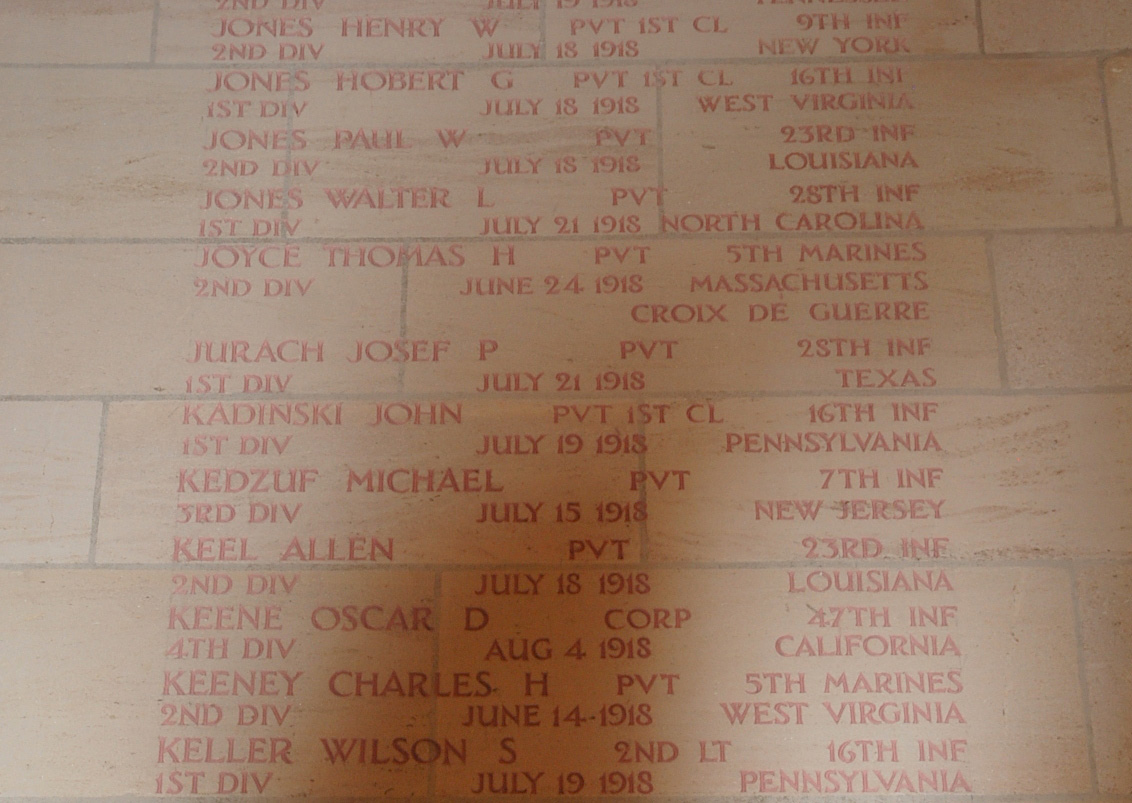 2ND DIV JULY 19 1918 TENNESSEE
JONES HENRY W PVT 1ST CL 9TH INF
2ND DIV JULY 18 1918 NEW YORK
JONES HOBERT G PVT 1ST CL 16TH INF
1ST DIV JULY 18 1918 WEST VIRGINIA
JONES PAUL W PVT 23RD INF
2ND DIV JULY 18 1918 LOUISIANA
JONES WALTER L PVT 28TH INF
1ST DIV JULY 21 1918 NORTH CAROLINA
JOYCE THOMAS H PVT 5TH MARINES
2ND DIV JUNE 24 1918 MASSACHUSETTS
CROIX DE GUERRE
JURACH JOSEF P PVT 28TH INF
1ST DIV JULY 21 1918 TEXAS
KADINSKI JOHN PVT 1ST CL 16TH INF
1ST DIV JULY 19 1918 PENNSYLVANIA
KEDZUF MICHAEL PVT 7TH INF
3RD DIV JULY 15 1918 NEW JERSEY
KEEL ALLEN PVT 23RD INF
2ND DIV JULY 18 1918 LOUISIANA
KEENE OSCAR D CORP 47TH INF
4TH DIV AUG 4 1918 CALIFORNIA
KEENEY CHARLES H PVT 5TH MARINES
2ND DIV JUNE 14 1918 WEST VIRGINIA
KELLER WILSON S 2ND LT 16TH INF
1ST DIV JULY 19 1918 PENNSYLVANIA